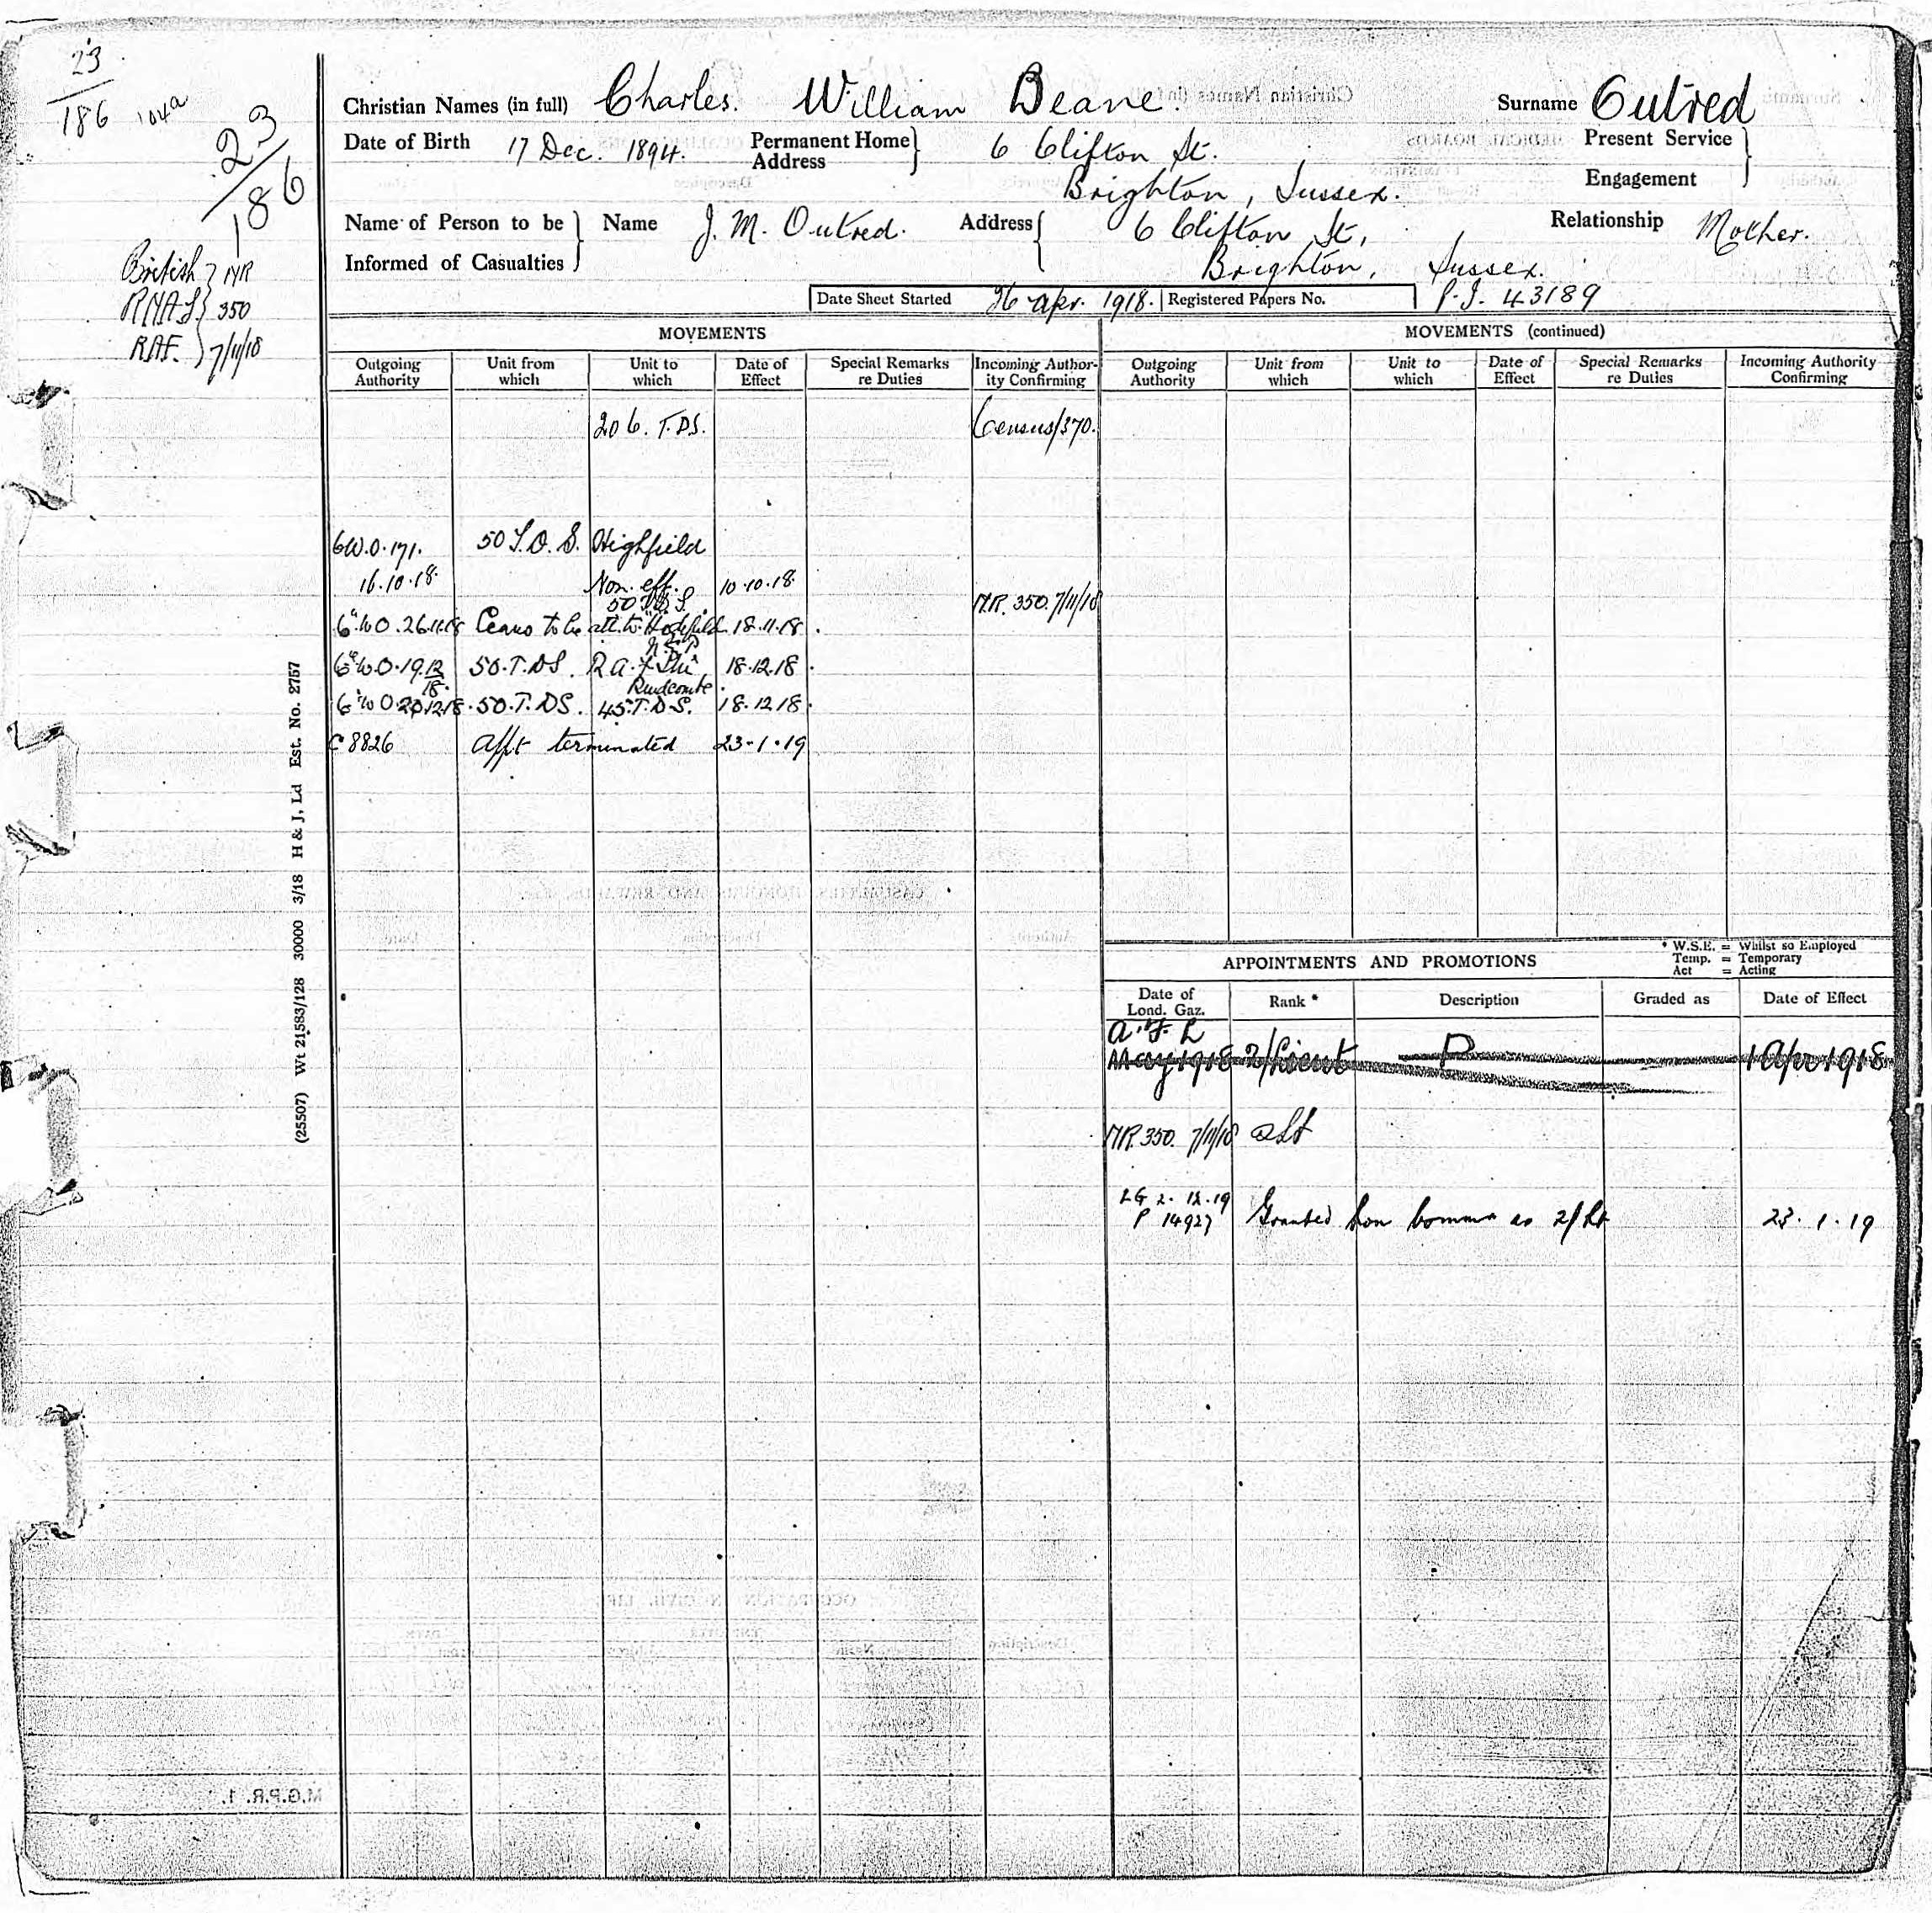 23
186 104a
23
186
British } MR
RNAS } 350
RAF. } 7/11/18
Christian Names (in full) Charles. William Deane. Surname Outred
Date of Birth 17 Dec. 1894. Permanent Home Address } 6 Clifton St. Brighton, Sussex. Present Service Engagement }
Name of Person to be Informed of Casualties } Name J. M. Outred. Address { 6 Clifton St, Brighton, Sussex. Relationship Mother.
Date Sheet Started 26 Apr. 1918. Registered Papers No. P.I. 43189
MOVEMENTS
Outgoing Authority Unit from which Unit to which Date of Effect Special Remarks re Duties Incoming Authority Confirming
206. T.D.S. Census/370.
6W.O.171. 50 T.D.S. Highfield
16.10.18. Non. eff. 10.10.18.
50 T.D.S. MR. 350. 7/11/18
6"WO.26.11.18 Ceases to be att. to 18.11.18.
6"WO.19.12/18. 50.T.DS. 18.12.18.
6"WO20.12.18. 50.T.DS. 45.T.D.S. 18.12.18.
C 8826 appt terminated 23-1-19
MOVEMENTS (continued)
Outgoing Authority Unit from which Unit to which Date of Effect Special Remarks re Duties Incoming Authority Confirming
APPOINTMENTS AND PROMOTIONS
* W.S.E. = Whilst so Employed
Temp. = Temporary
Act = Acting
Date of Lond. Gaz. Rank * Description Graded as Date of Effect
A.F.L
May 1918 2/Lieut P 1 Apr 1918
MR.350. 7/11/18
LG 2.12.19
P 14927 Granted hon comm as 2/Lt 23.1.19
(25507) Wt 21583/128 30000 3/18 H & J, Ld Est. No. 2757
M.G.P.R. 1.